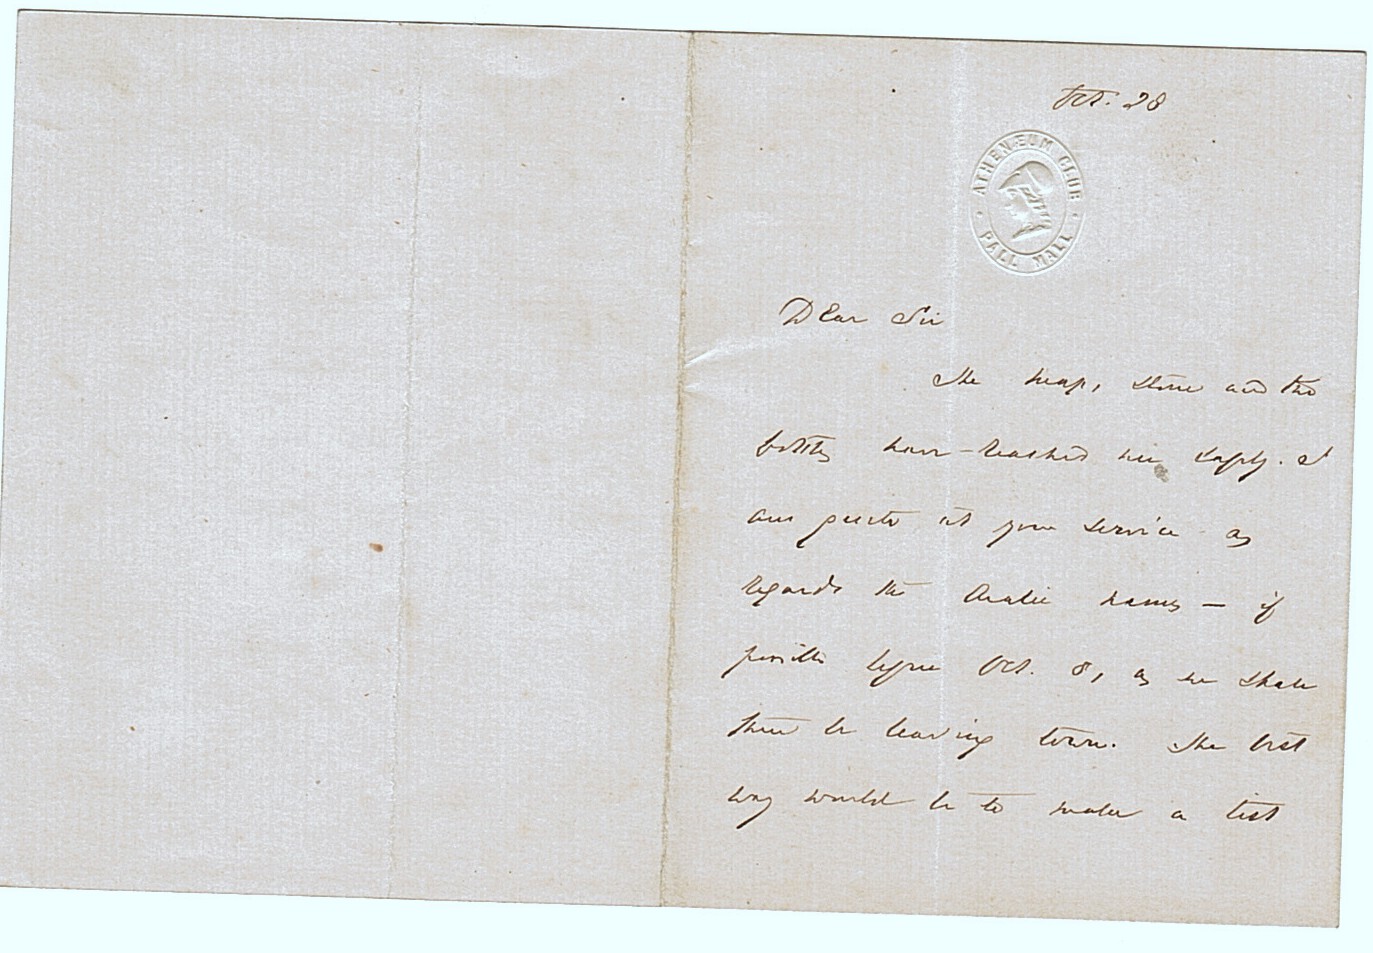 Oct. 28
ATHENÆUM CLUB
PALL MALL
Dear Sir
The maps, stone and the
bottles have reached me safely. I
am quite at your service as
regards the Arabic names — if
possible before Oct. 8, as we shall
then be leaving town. The best
way would be to make a list